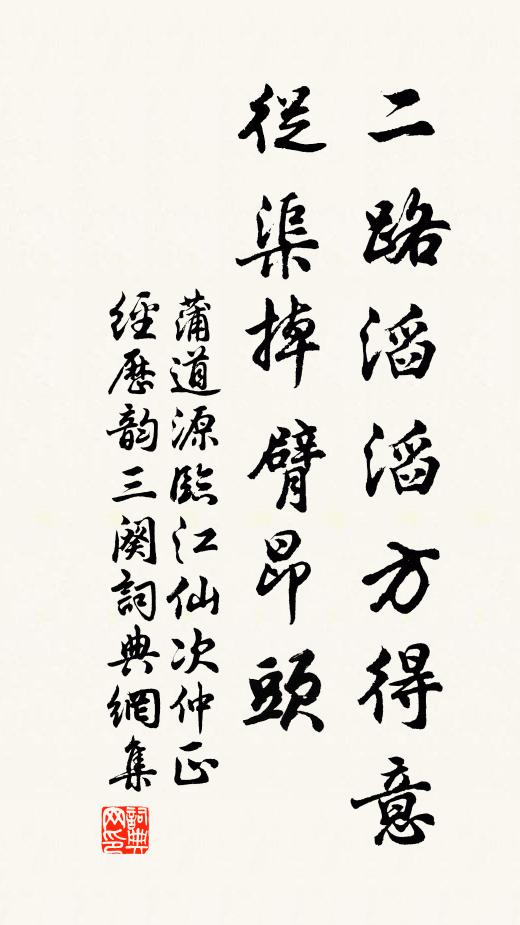 二路滔滔方得意
從渠掉臂昂頭
蒲道源臨江仙次仲正
經歷韵三闋詞典網集
詞典
网印